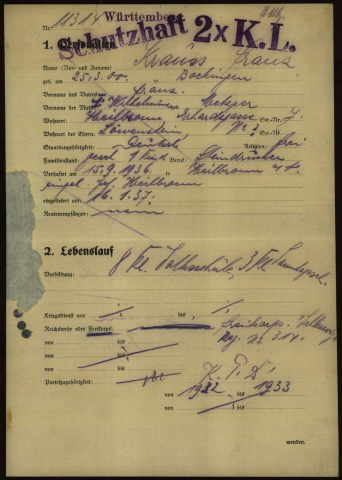 Nr. 11314
Württemberg
Schutzhaft 2 x K.L.
1. Personalien
Krauss Franz
Name (Vor- und Zuname)
geb. am 25.3.00. in Böckingen
Vorname des Vaters Franz.
Vorname der Mutter Wilhelmine Metzger
Wohnort: Heilbronn, Str.-Nr. 7
Wohnort der Eltern: Löwenstein Str.-Nr.
Staatsangehörigkeit: Deutsch Religion: frei
Familienstand: 1 Kind Beruf: Steindrucker
Verhaftet am 15.9.1936 in Heilbronn
Heilbronn
eingeliefert am: 16.1.37.
Rentenempfänger: nein
2. Lebenslauf
Vorbildung: 8 Kl. Volksschule, 3 Kl.
Kriegsdienst von bis
Reichswehr oder Freikorps Freikorps.
von bis
von bis
von bis K.P.D.
Parteizugehörigkeit: bis 1932 - 1933
von bis
wenden.